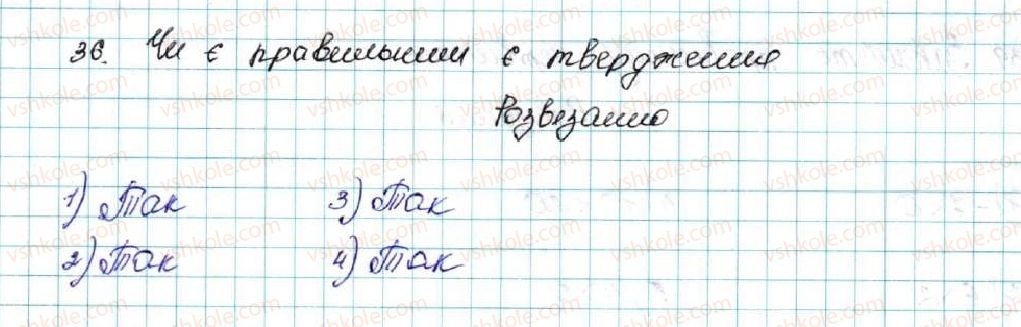 36. Чи є правильним є твердження
Розвезанню
1) Так 3) Так
2) Так 4) Так